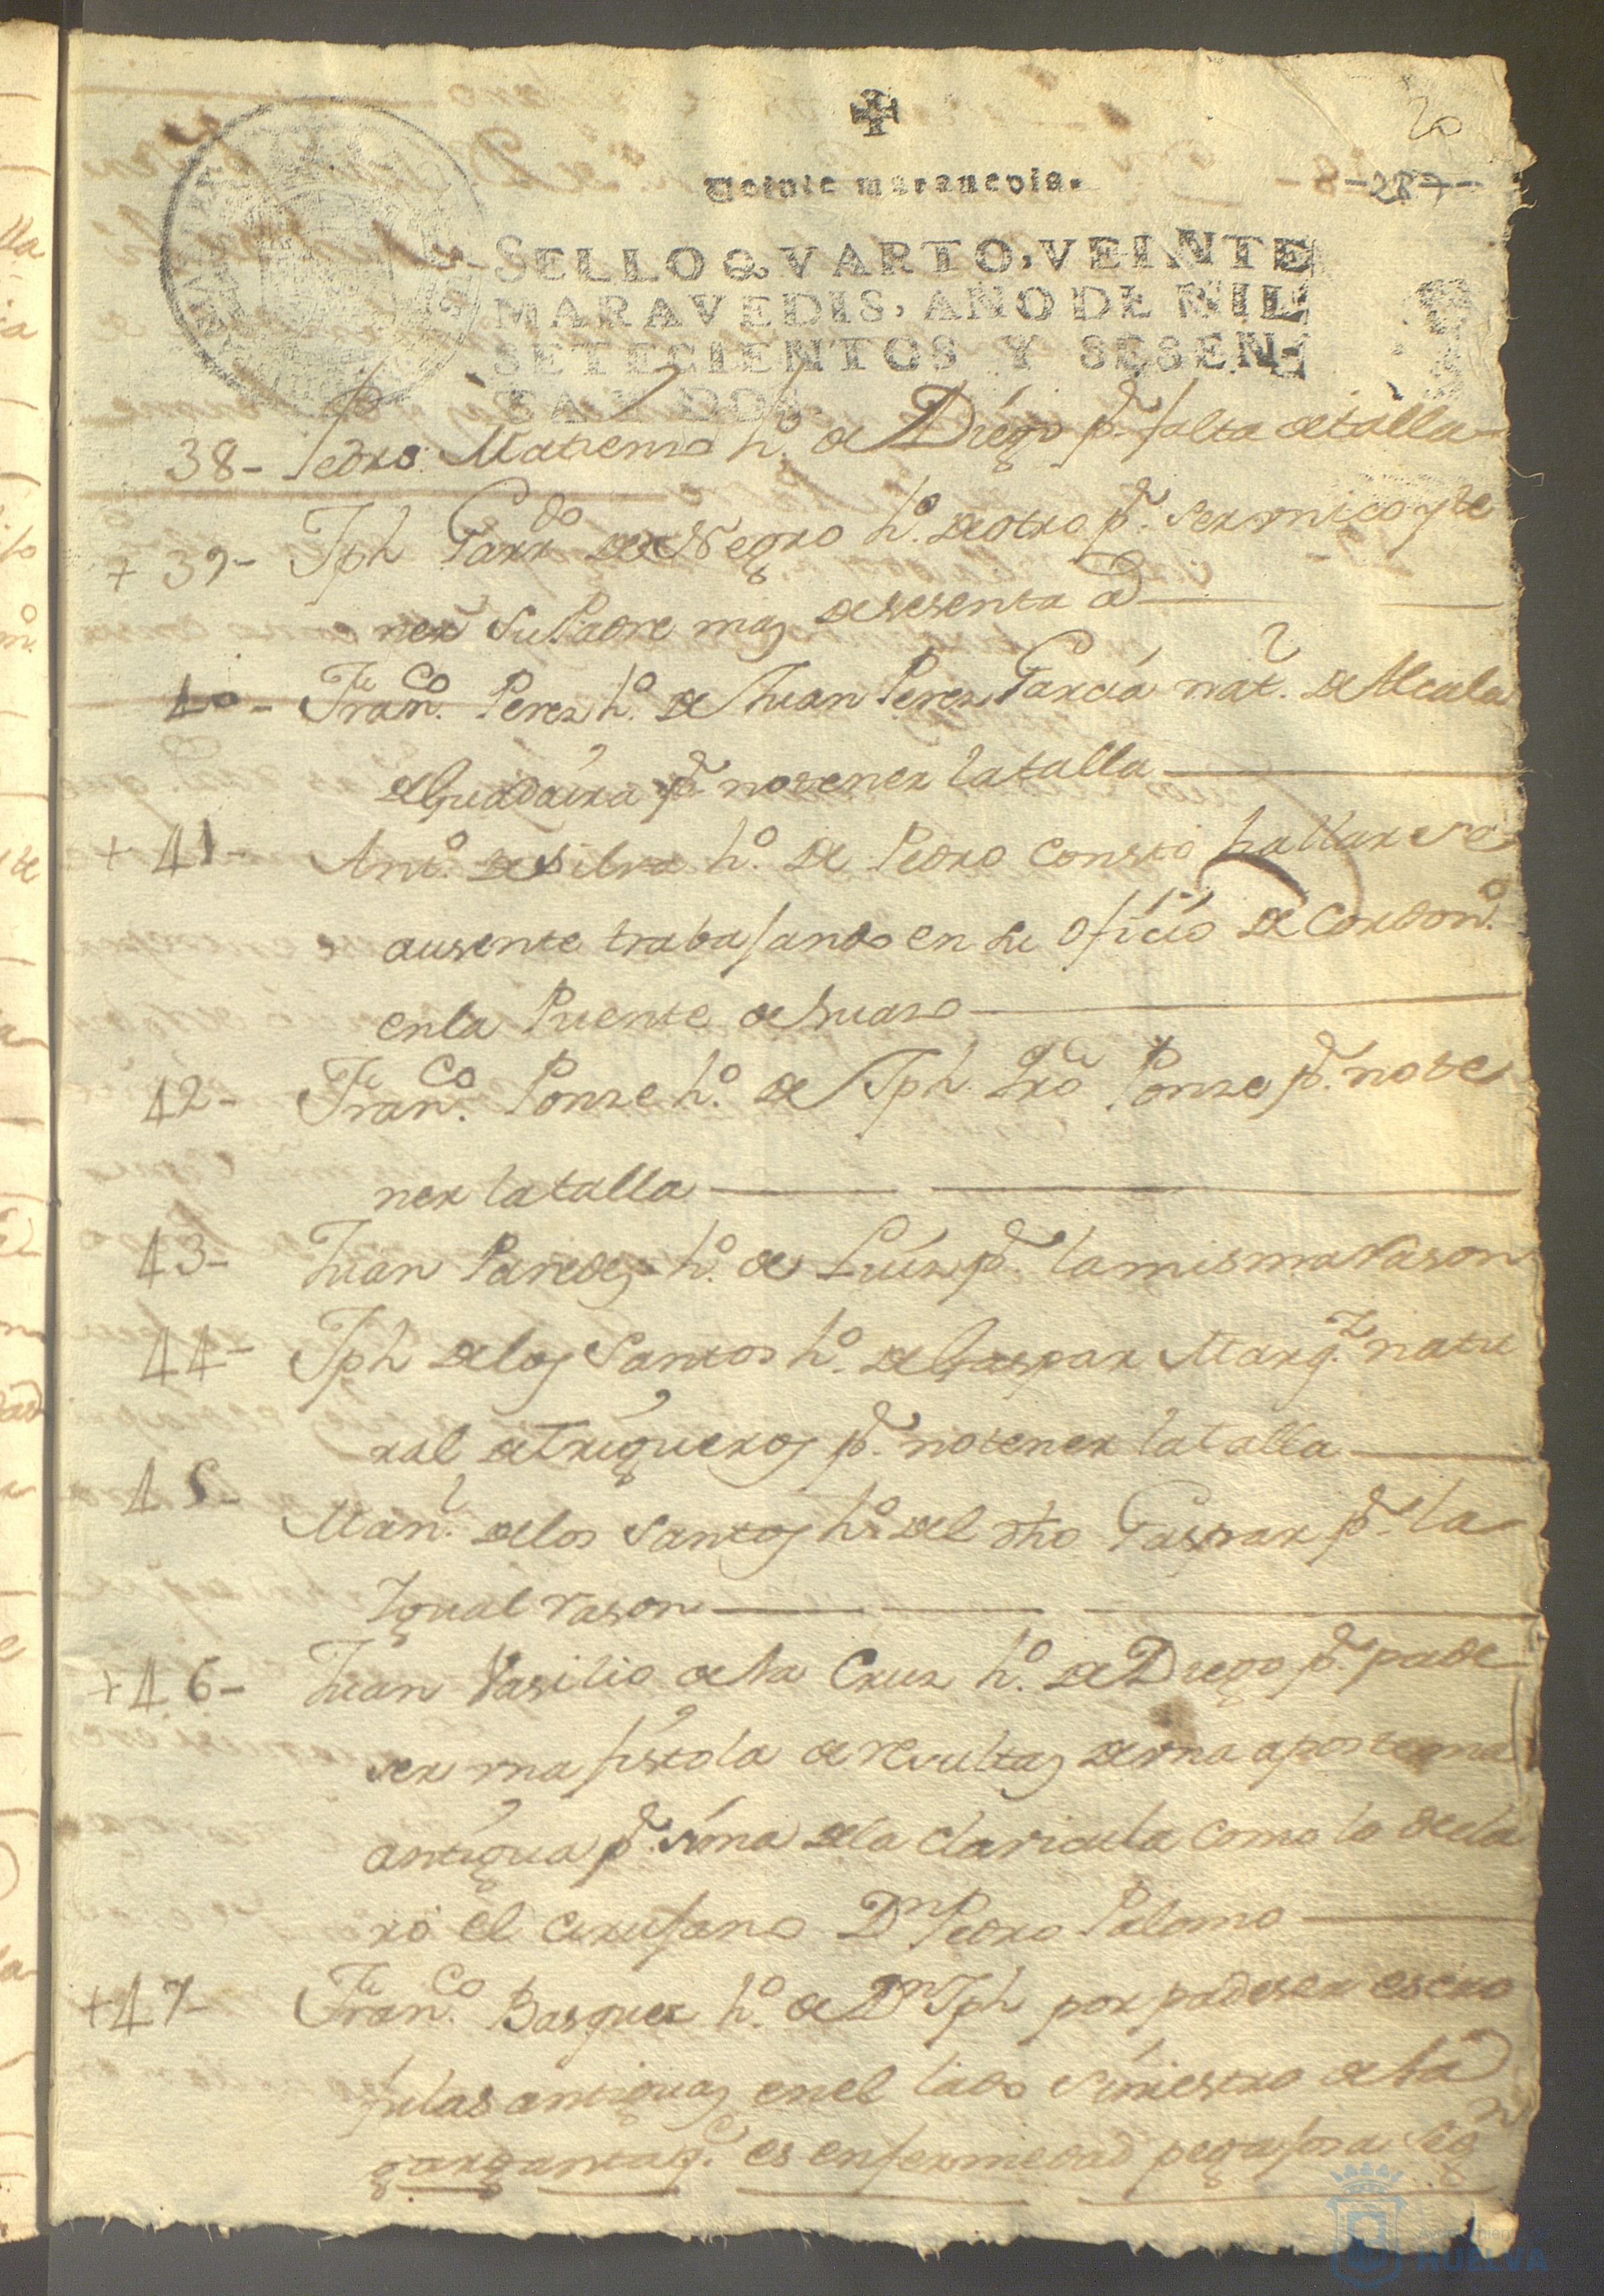 20
Veinte maravedis.
-287-
SELLO QVARTO, VEINTE
MARAVEDIS, AÑO DE MIL
SETECIENTOS Y SESEN-
TA Y DOS.
38- Pedro Matiemo h.º de Diego p.r falta de talla
+ 39- Jph Garr.do de Negro h.º de otro p.r ser unico y te
ner su Padre mas de sesenta a.s
40- Fran.co Perez h.º de Juan Perez Garcia nat.l de Alcala
de Guadaira p.r no tener la talla
+ 41- Ant.º de Silva h.º de Pedro constó hallarse
ausente trabajando en su oficio de Cordon.º
en la Puente de Suaso
42- Fran.co Ponze h.º de Jph Ponze p.r no te
ner la talla
43- Juan Paredes h.º de Luiz p.r la misma rason
44- Jph de los Santos h.º de Gaspar Marq.z natu
ral de Trigueros p.r no tener la talla
45- Man.l de los Santos h.º del dho Gaspar p.r la
Igual rason
+ 46- Juan Vasilio de la Cruz h.º de Diego p.r pade
ser una fistola de resultas de una apostema
antigua p.r sima de la clavicula como lo decla
ró el cirujano D.n Pedro Palomo
+ 47- Fran.co Basquez h.º de D.n Jph por padeser escro
fulas antiguas en el lado siniestro de la
garganta q.e es enfermedad pegajosa seg.n
Ayuntamiento de
HUELVA